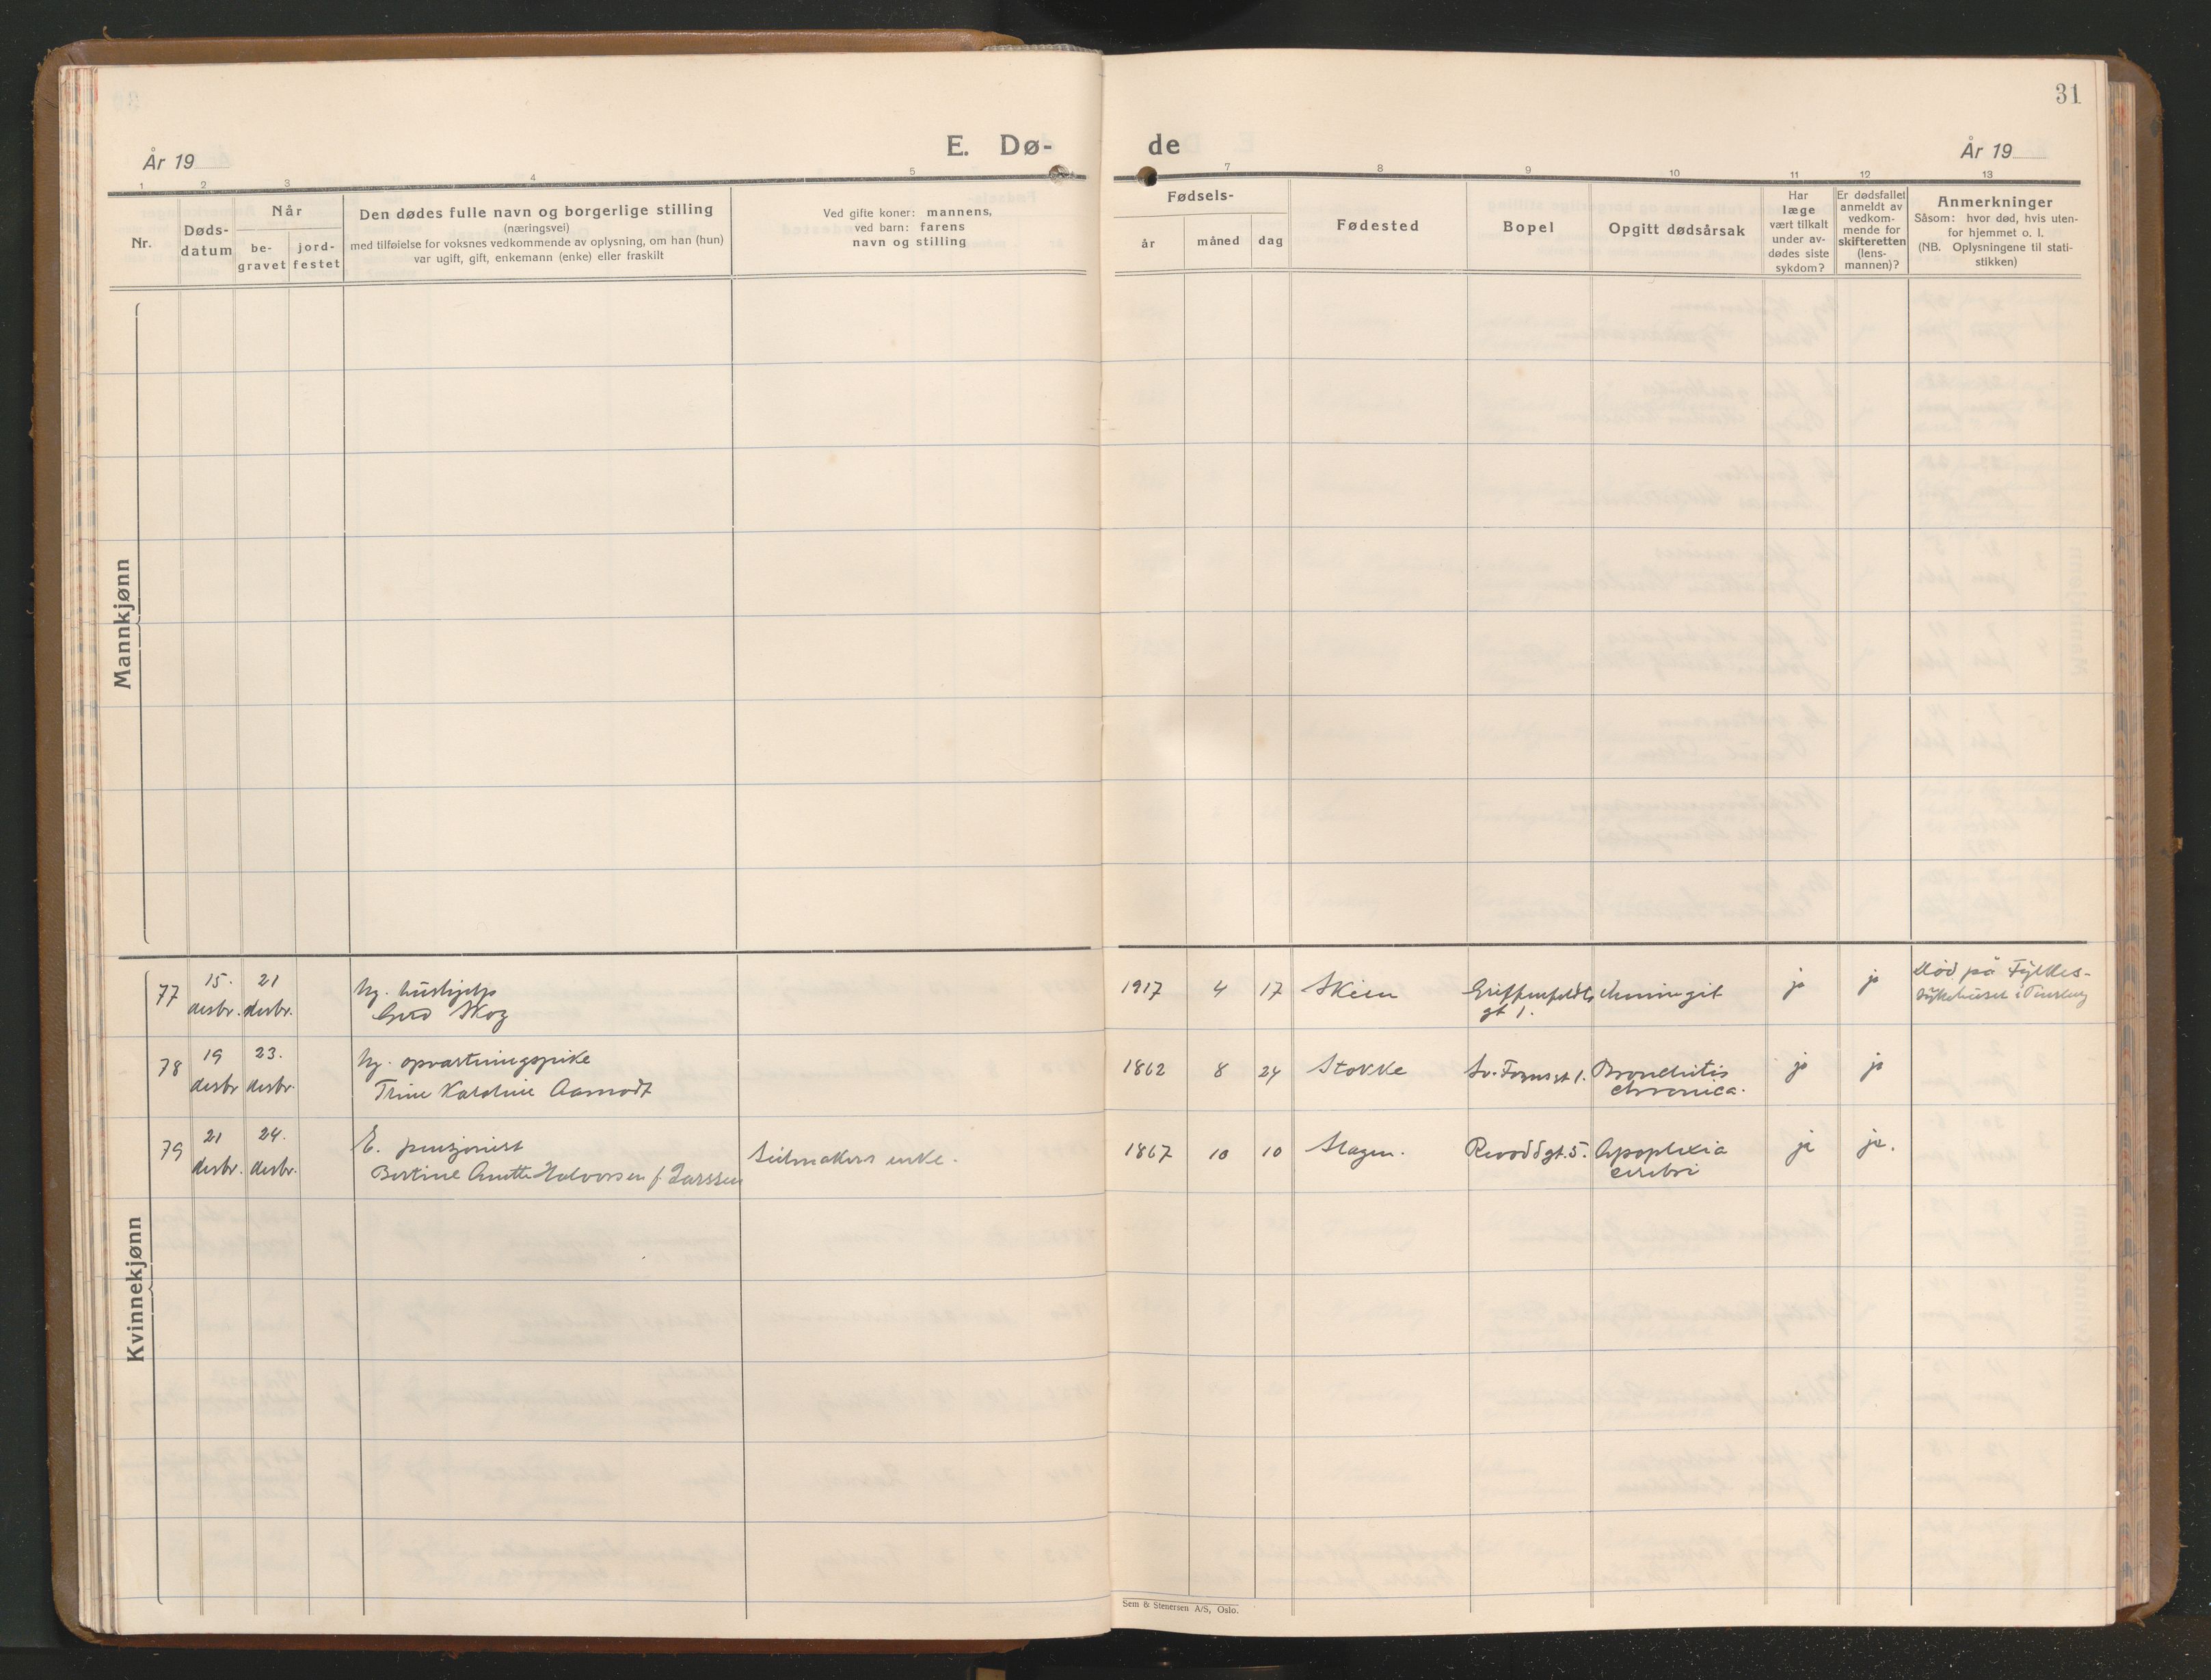 31
År 19
E. Dø-
de
År 19
1 2 3 4 5 7 8 9 10 11 12 13
Nr.
Døds-
datum
Når
be-
gravet
jord-
festet
Den dødes fulle navn og borgerlige stilling
(næringsvei)
med tilføielse for voksnes vedkommende av oplysning, om han (hun)
var ugift, gift, enkemann (enke) eller fraskilt
Ved gifte koner: mannens,
ved barn: farens
navn og stilling
Fødsels-
år måned dag
Fødested
Bopel
Opgitt dødsårsak
Har
læge
vært tilkalt
under av-
dødes siste
sykdom?
Er dødsfallet
anmeldt av
vedkom-
mende for
skifteretten
(lens-
mannen)?
Anmerkninger
Såsom: hvor død, hvis uten-
for hjemmet o. l.
(NB. Oplysningene til stati-
stikken)
Mannkjønn
Kvinnekjønn
77
15.
desbr.
21
desbr.
Ug. hushjelp
Gerd Skog
1917 4 17 Skien
Griffenfeldts
gt 1.
Meningit
ja
ja
Død på Fylkes-
sykehuset i Tønsberg
78
19
desbr
23.
desbr.
Ug. opvartningspike
Trine Karoline Aamodt
1862 8 24 Stokke
Sv. Foynsgt 1.
Bronchitis
chronica.
ja
ja
79
21
desbr.
24.
desbr.
E. pensjonist
Bertine Anette Halvorsen f. Larssen
Seilmakers enke.
1867 10 10 Slagen.
gt. 5.
Apoplexia
cerebri
ja
ja.
Sem & Stenersen A/S, Oslo.